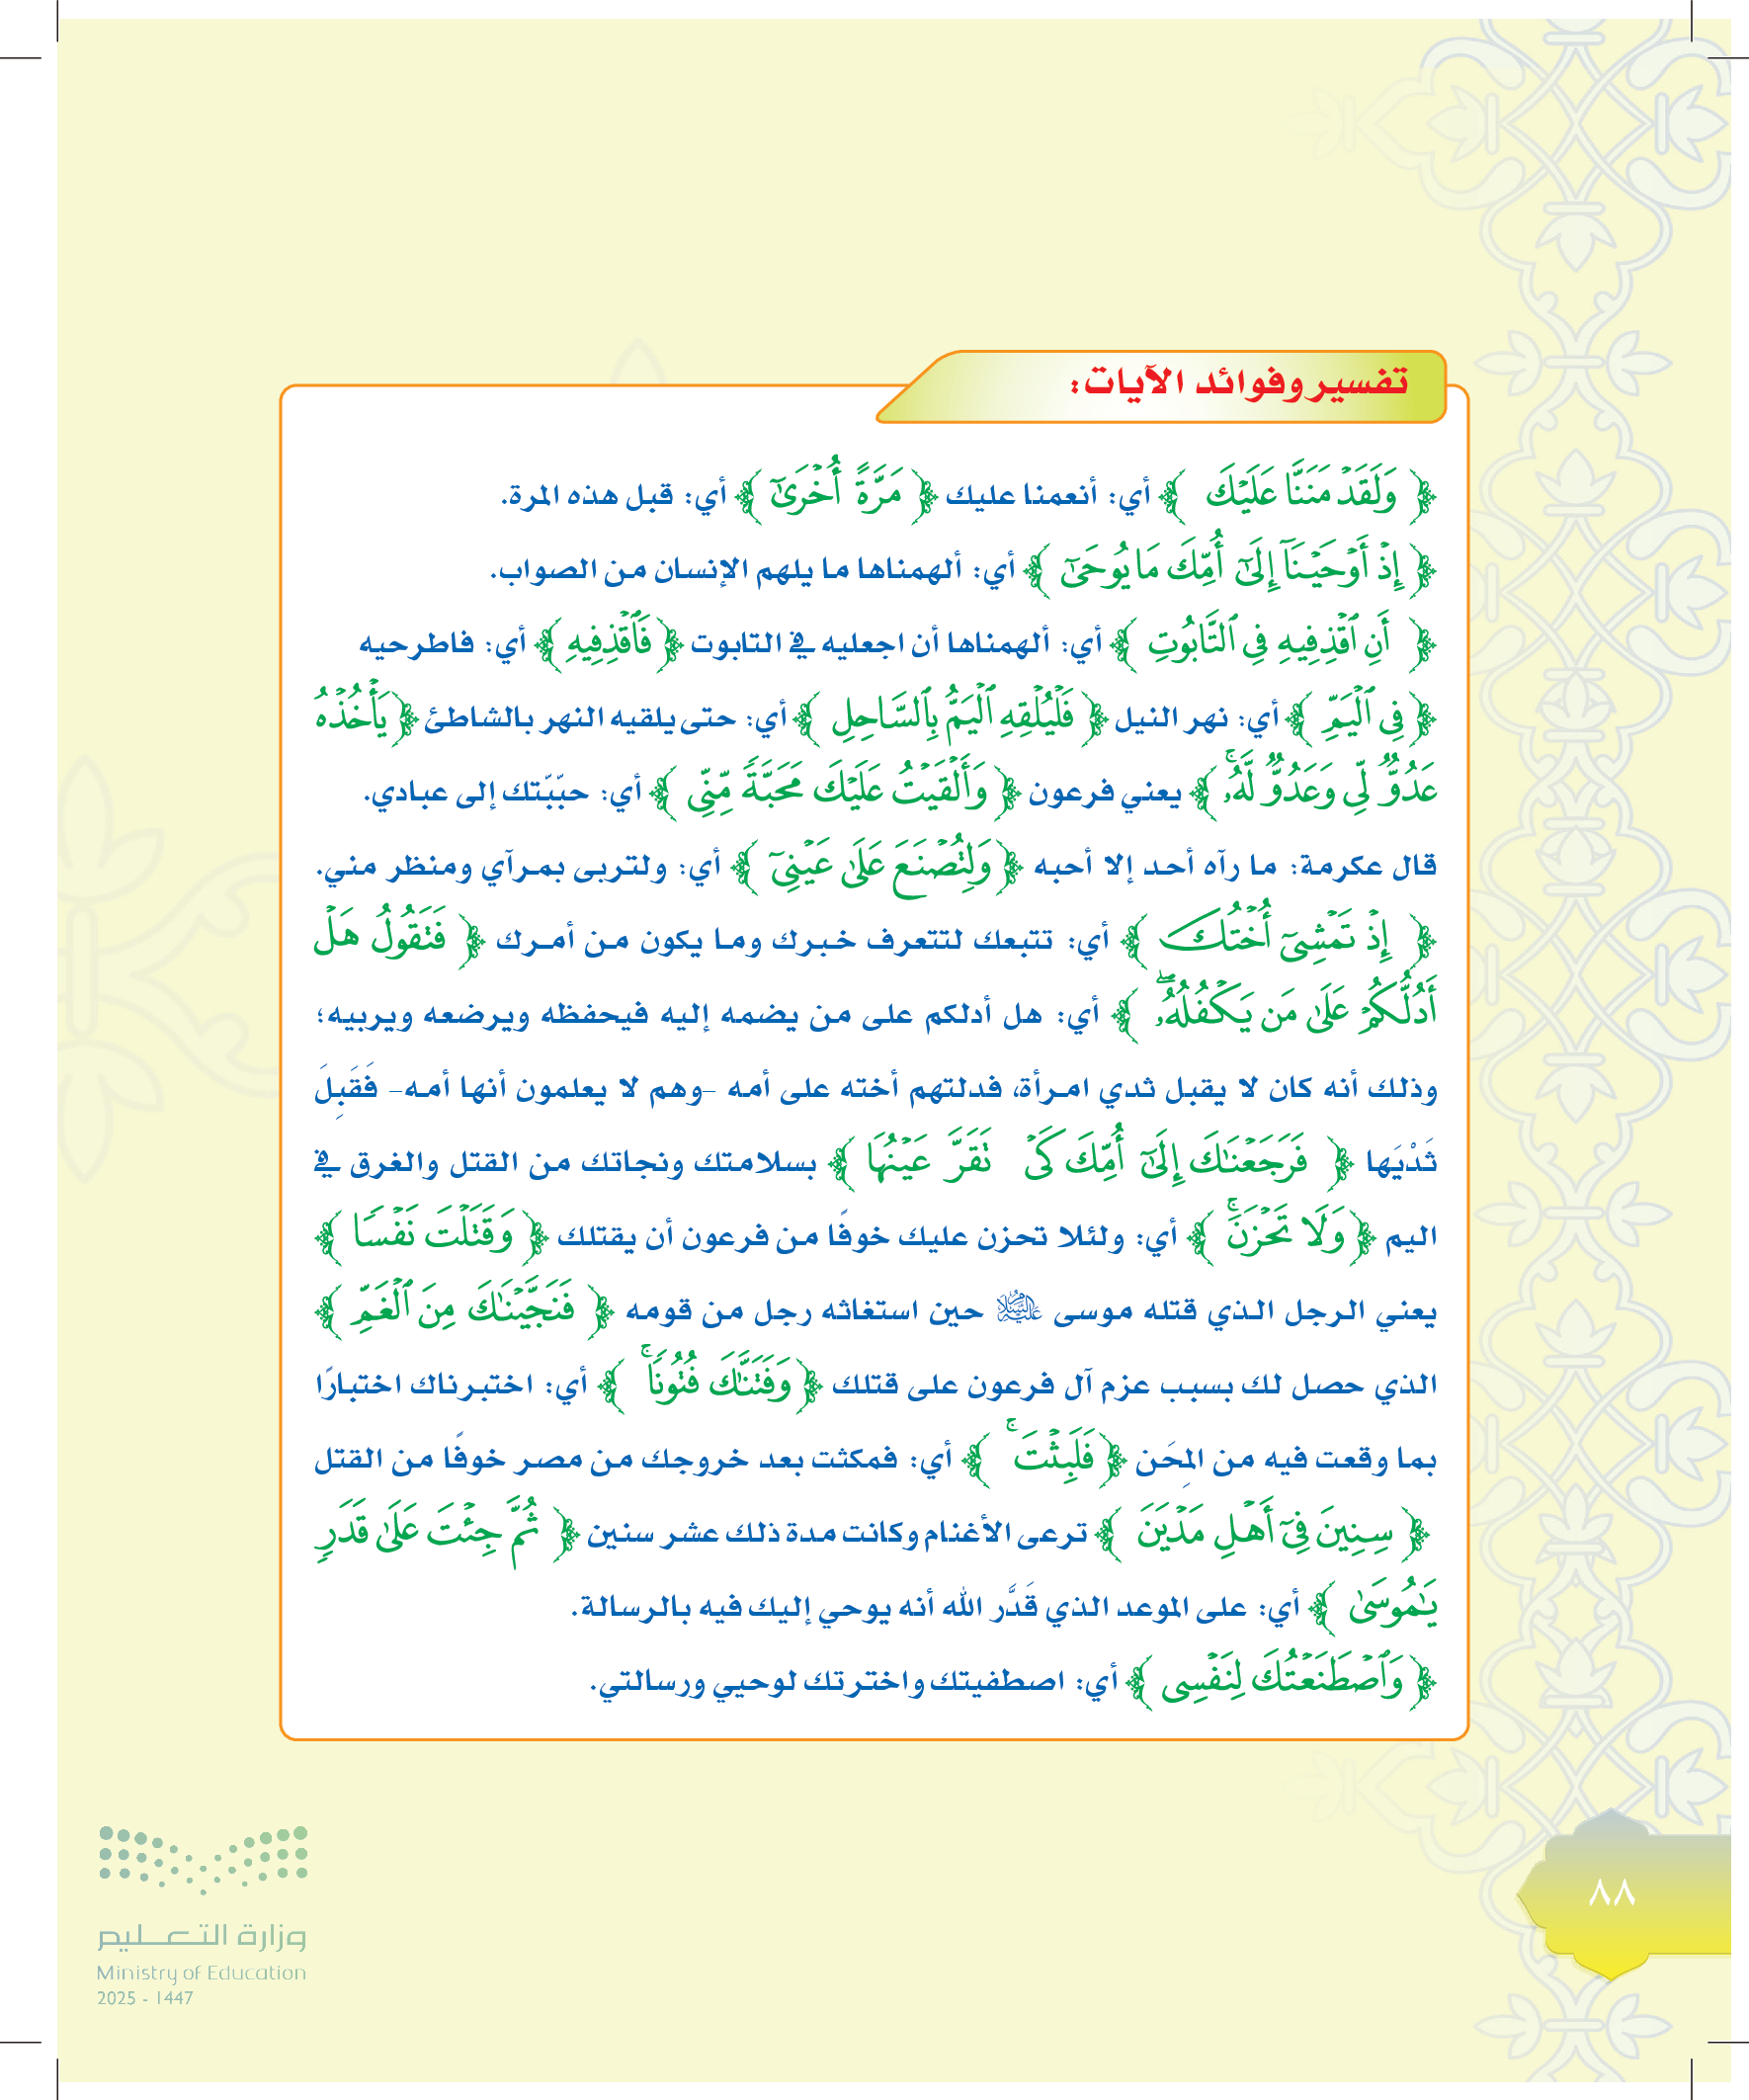 تفسير وفوائد الآيات:
﴿ وَلَقَدۡ مَنَنَّا عَلَيۡكَ ﴾ أي: أنعمنا عليك ﴿ مَرَّةً أُخۡرَىٰٓ ﴾ أي: قبل هذه المرة.
﴿ إِذۡ أَوۡحَيۡنَآ إِلَىٰٓ أُمِّكَ مَا يُوحَىٰٓ ﴾ أي: ألهمناها ما يلهم الإنسان من الصواب.
﴿ أَنِ ٱقۡذِفِيهِ فِي ٱلتَّابُوتِ ﴾ أي: ألهمناها أن اجعليه في التابوت ﴿ فَٱقۡذِفِيهِ ﴾ أي: فاطرحيه
﴿ فِي ٱلۡيَمِّ ﴾ أي: نهر النيل ﴿ فَلۡيُلۡقِهِ ٱلۡيَمُّ بِٱلسَّاحِلِ ﴾ أي: حتى يلقيه النهر بالشاطئ ﴿ يَأۡخُذۡهُ
عَدُوّٞ لِّي وَعَدُوّٞ لَّهُۥۚ ﴾ يعني فرعون ﴿ وَأَلۡقَيۡتُ عَلَيۡكَ مَحَبَّةٗ مِّنِّي ﴾ أي: حبّبتك إلى عبادي.
قال عكرمة: ما رآه أحد إلا أحبه ﴿ وَلِتُصۡنَعَ عَلَىٰ عَيۡنِيٓ ﴾ أي: ولتربى بمرآي ومنظر مني.
﴿ إِذۡ تَمۡشِيٓ أُخۡتُكَ ﴾ أي: تتبعك لتتعرف خبرك وما يكون من أمرك ﴿ فَتَقُولُ هَلۡ
أَدُلُّكُمۡ عَلَىٰ مَن يَكۡفُلُهُۥۖ ﴾ أي: هل أدلكم على من يضمه إليه فيحفظه ويرضعه ويربيه؛
وذلك أنه كان لا يقبل ثدي امرأة، فدلتهم أخته على أمه -وهم لا يعلمون أنها أمه- فَقَبِلَ
ثَدْيَها ﴿ فَرَجَعۡنَٰكَ إِلَىٰٓ أُمِّكَ كَيۡ تَقَرَّ عَيۡنُهَا ﴾ بسلامتك ونجاتك من القتل والغرق في
اليم ﴿ وَلَا تَحۡزَنَۚ ﴾ أي: ولئلا تحزن عليك خوفًا من فرعون أن يقتلك ﴿ وَقَتَلۡتَ نَفۡسٗا ﴾
يعني الرجل الذي قتله موسى عليه السلام حين استغاثه رجل من قومه ﴿ فَنَجَّيۡنَٰكَ مِنَ ٱلۡغَمِّ ﴾
الذي حصل لك بسبب عزم آل فرعون على قتلك ﴿ وَفَتَنَّٰكَ فُتُونٗاۚ ﴾ أي: اختبرناك اختبارًا
بما وقعت فيه من المِحَن ﴿ فَلَبِثۡتَۚ ﴾ أي: فمكثت بعد خروجك من مصر خوفًا من القتل
﴿ سِنِينَ فِيٓ أَهۡلِ مَدۡيَنَ ﴾ ترعى الأغنام وكانت مدة ذلك عشر سنين ﴿ ثُمَّ جِئۡتَ عَلَىٰ قَدَرٖ
يَٰمُوسَىٰ ﴾ أي: على الموعد الذي قَدَّر الله أنه يوحي إليك فيه بالرسالة.
﴿ وَٱصۡطَنَعۡتُكَ لِنَفۡسِي ﴾ أي: اصطفيتك واخترتك لوحيي ورسالتي.
٨٨
وزارة التعليم
Ministry of Education
2025 - 1447